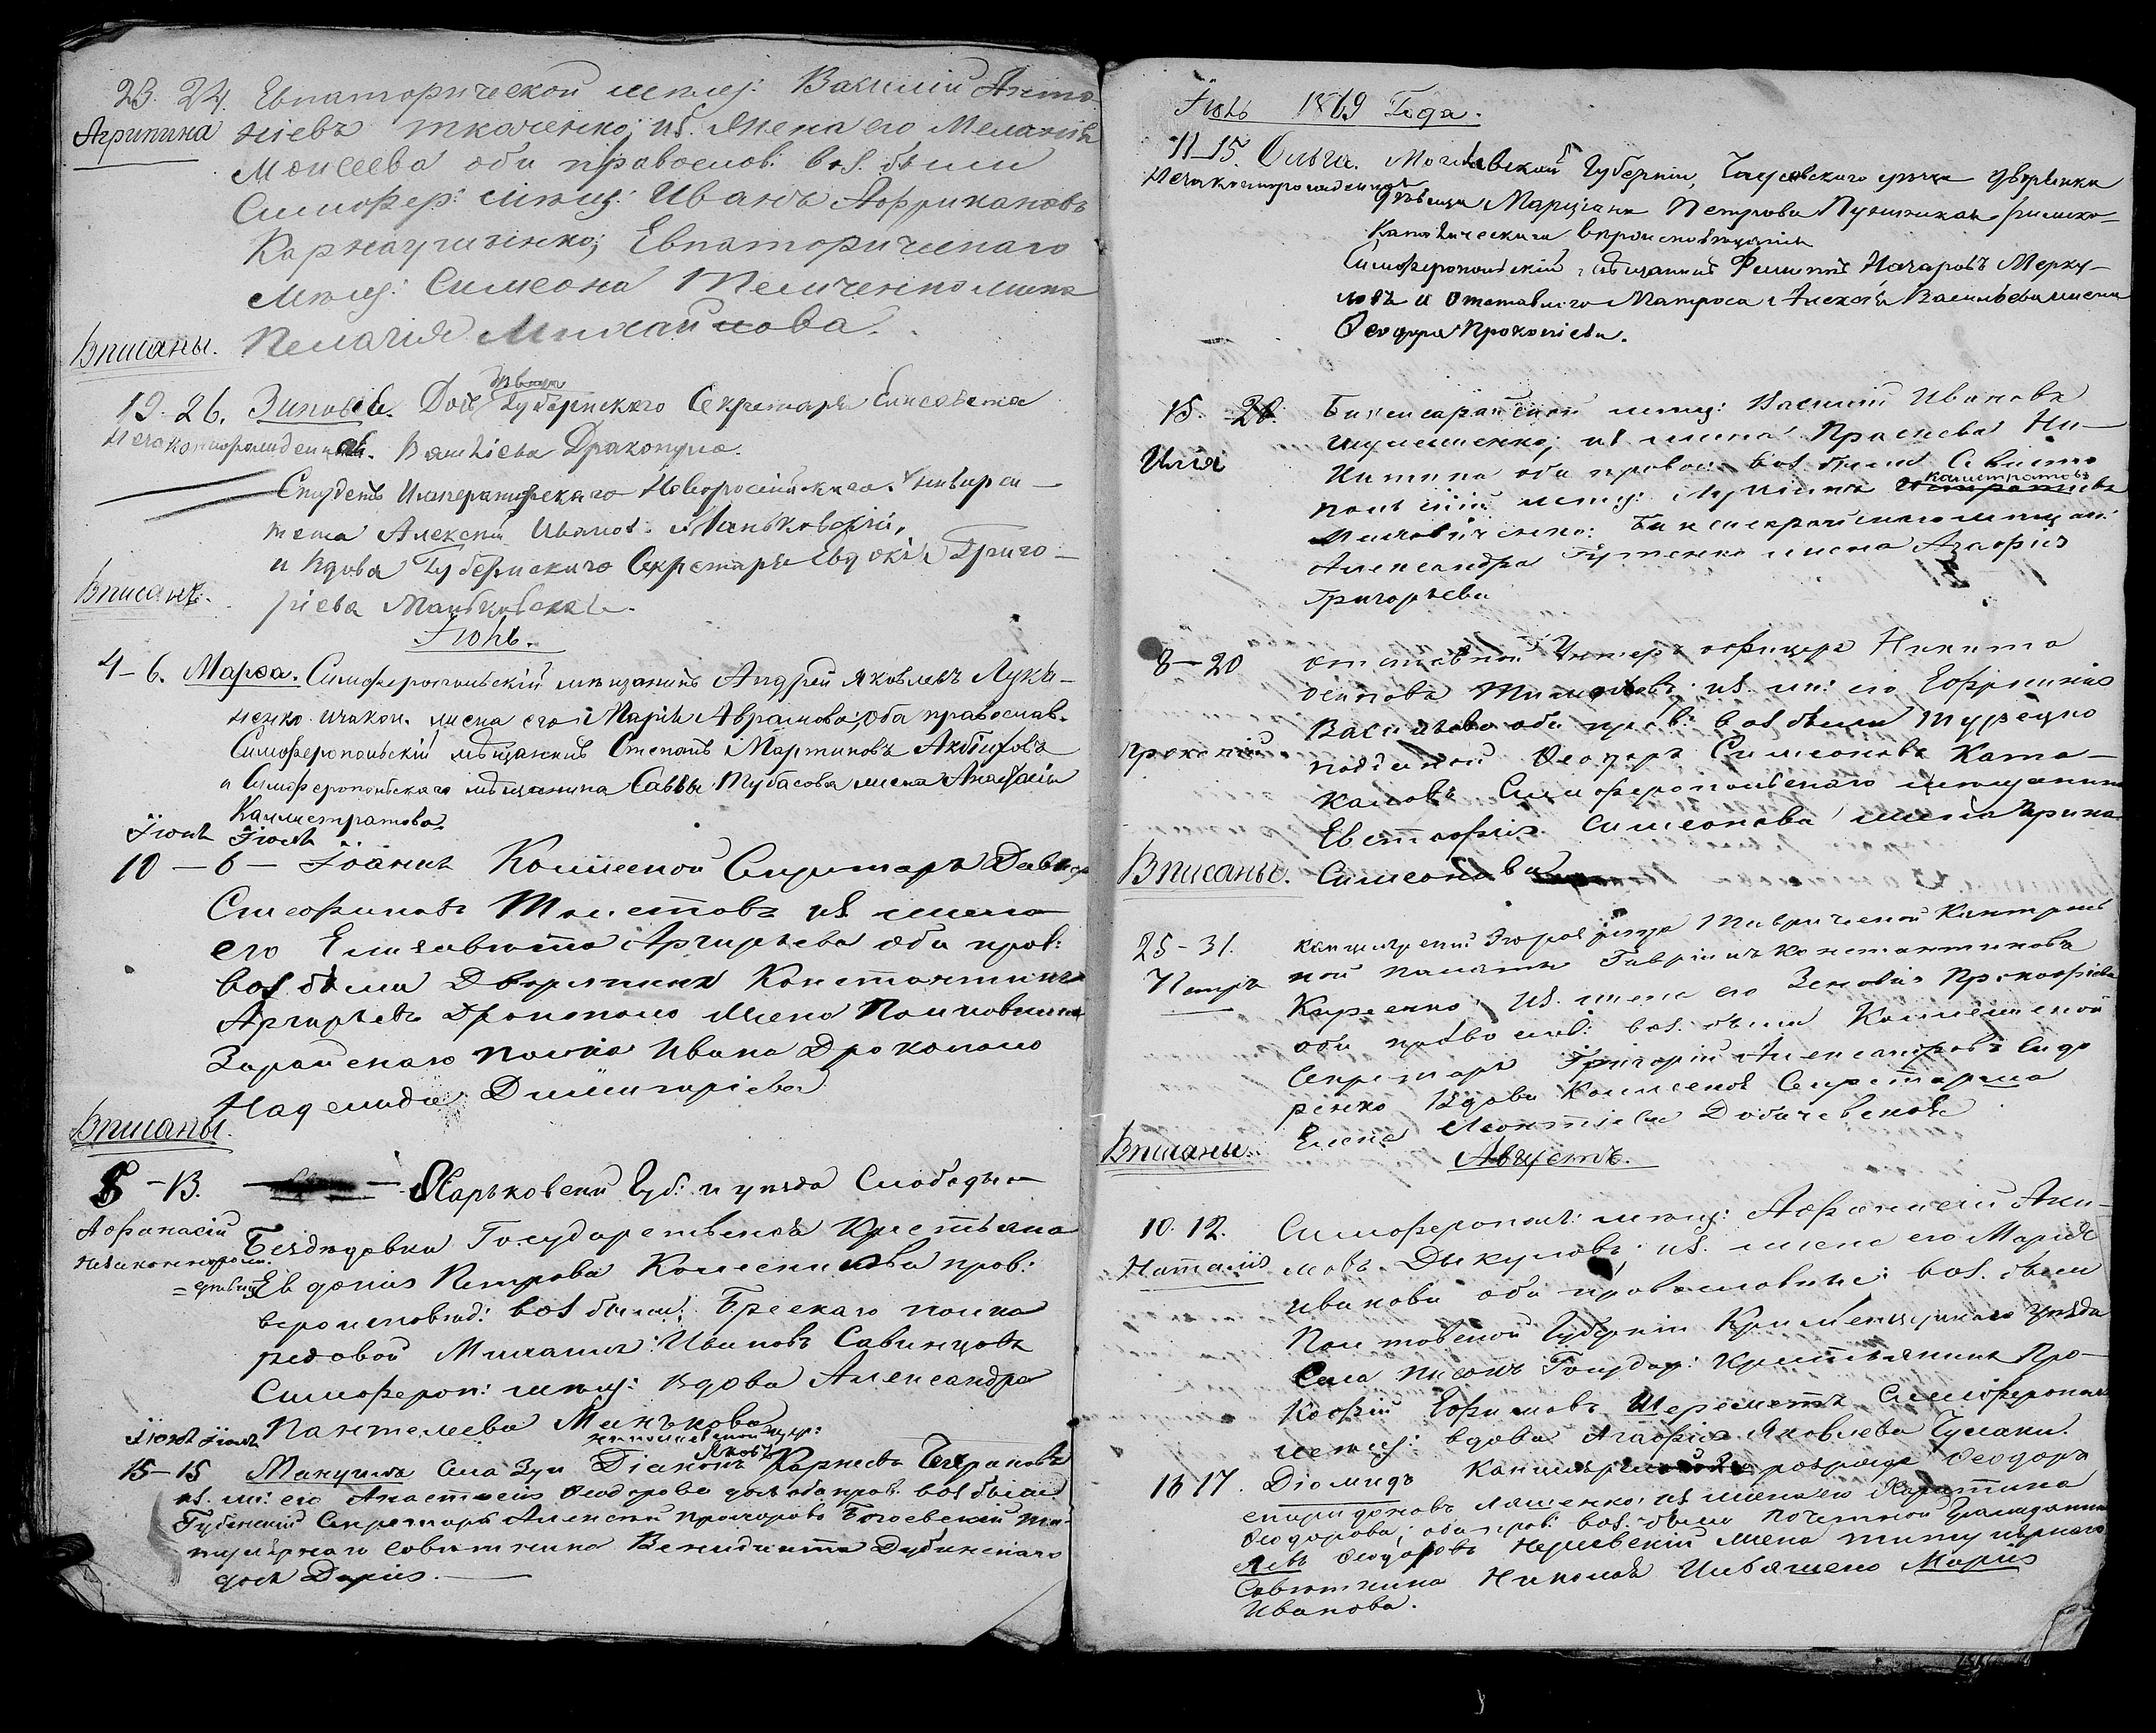 23. 24. Евпаторической мѣщ: Василій Анто-
Агрипина ніевъ Ткаченко; из. жена его Меланія
Моисеева оба православ: вос. были
Симфер: мѣщ: Иванъ Африкановъ
Карнаушенко; Евпаторическаго
мѣщ: Симеона Тельченко жена
Вписаны. Пелагія Михайлова.
19. 26. Зиновій. Дочь Губернскаго Секретаря Елисавета
Незаконнорожденный. Дракопуло.
Студентъ Императорскаго Новороссійскаго Универси-
тета Алексѣй Иванов. Маньковскій,
и Вдова Губернскаго Секретаря Евдокія Григо-
Вписаны. ріева Маньковская.
Іюнь.
4-6. Марѳа. Симферопольскій мѣщанинъ Андрей Яковлевъ Лукь-
ненко и закон. жена его Марія Аврамова; оба православ.
Симферопольскій мѣщанинъ Степанъ Мартиновъ
и Симферопольскаго мѣщанина Саввы Тубасова жена Анастасія
Каллистратова.
Іюнь Іюнь
10-6- Іоаннъ Коллежской Секретарь Давидъ
Толстовъ из. жена
его Елизавета Аргирьева оба прав:
вос. были Дворянинъ Константинъ
Аргирьевъ Дракополо жена Полковника
Зарайскаго полка Ивана Дракополо
Надежда Димитріева
Вписаны.
8-13. Харьковской Губ. и уѣзда Слободы
Аѳанасій Бездѣдовки Государственная Крестьянка
Незаконнорож. Евдокія Петрова Колесникова прав:
=дѣвица
вероисповѣд: вос. были: Брескаго полка
рядовой Михаилъ Ивановъ Савинцовъ
Симфероп: мѣщ: вдова Александра
Пантелеева Минькова
Іюнь Іюнь
15-15 Мануилъ Села Зуи Діаконъ Яковъ Корнеевъ
из. ж: его Анастасія Ѳеодорова оба прав. вос. были
Губернскій Секретарь Алексѣй Прохоровъ Богоевскій ти-
тулярнаго совѣтника Венидикта Дубинскаго
дочь Дарія.
Іюль 1869 Года.
11-15. Ольга. Могилевской Губерніи, уѣзда дворянка
Незаконнорожденная
дѣвица Марціана Петрова римско-
Католическаго вѣроисповѣданія
Симферопольскій мѣщанинъ Филиппъ Назаровъ Мерку-
ловъ и Отставнаго Матроса Алексѣя Васильева жена
Ѳеодора Прокопіева.
15. 20. Бахчисарайской мѣщ: Василій Ивановъ
из жена Прасковья Ни-
Илія китина оба правосл. вос. были Севасто
польскій мѣщ: Калистратовъ
Бахчисарайскаго мѣщан:
Александра жена Агафія
Григорьева
8-20 отставной Унтеръ-офицеръ Никита
Осиповъ из. ж: его Ефросинія
Васильева оба прав: вос. были Турецко
Прокопій подданой Ѳеодоръ Симеоновъ Ката-
каловъ Симферопольскаго мѣщанина
Евстафія Симеонова жена Ирина
Вписаны. Симеонова
25-31. канцелярскій 3го разряда Таврической Контроль
Петръ ной палаты Гавріилъ Константиновъ
Киреенко; из. жена его Зеновія Прокофіева
оба православ: вос. были Коллежской
Секретарь Григорій Александровъ Сидо
ренко Вдова Коллежскаго Секретаря
Елена Леонтіева
Вписаны. Августъ.
10. 12. Симферопол: мѣщ: Аѳанасій Аки-
Наталія мовъ Дикуловъ; из. жена его Марія
Иванова оба православные: вос. были
Полтавской Губерніи Кременчугскаго Уѣзда
Села Государ: Крестьянинъ Про-
кофій Ефимовъ Шереметъ Симферопол
мѣщ: вдова Агафія Яковлева Чумаки.
16 17. Діомидъ Канцелярскій разряда Ѳеодоръ
Спиридоновъ Ляшенко; из жена его Харитина
Ѳеодорова; оба прав: вос. были Почетной Гражданинъ
Левъ Ѳеодоровъ жена титулярнаго
Совѣтника Николая Марія
Иванова.